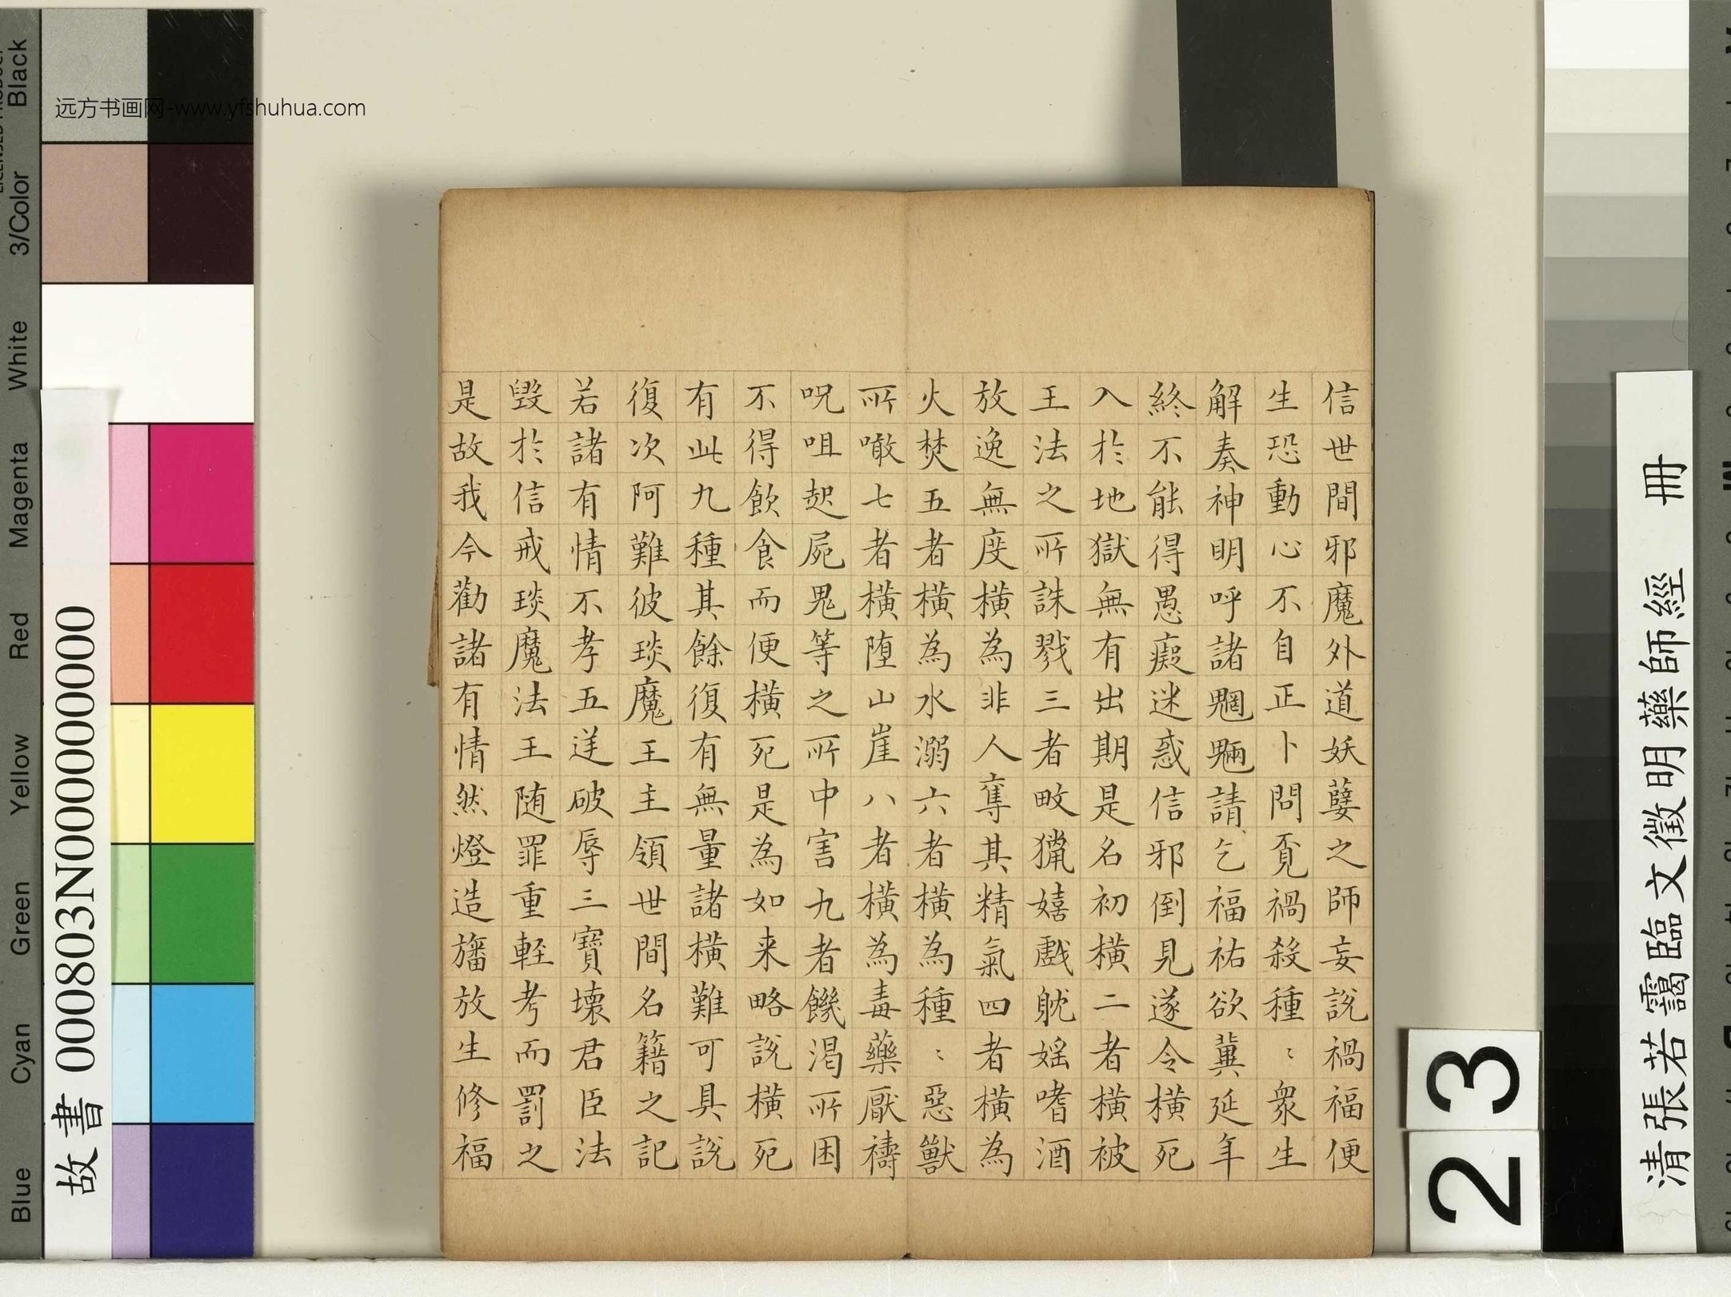 远方书画网-www.yfshuhua.com
信世間邪魔外道妖孽之師妄説禍福便
生恐動心不自正卜問覓禍殺種〻衆生
解奏神明呼諸魍魎請乞福祐欲冀延年
終不能得愚癡迷惑信邪倒見遂令横死
入於地獄無有出期是名初横二者横被
王法之所誅戮三者畋獵嬉戲躭婬嗜酒
放逸無度横為非人奪其精氣四者横為
火焚五者横為水溺六者横為種〻惡獸
所噉七者横堕山崖八者横為毒藥厭禱
呪咀起屍鬼等之所中害九者饑渴所困
不得飲食而便横死是為如来略説横死
有此九種其餘復有無量諸横難可具説
復次阿難彼琰魔王主領世間名籍之記
若諸有情不孝五逆破辱三寶壞君臣法
毀於信戒琰魔法王随罪重輕考而罰之
是故我今勸諸有情然燈造旛放生修福
清張若靄臨文徵明藥師經 冊
23
故書 000803N000000000
Black
3/Color
White
Magenta
Red
Yellow
Green
Cyan
Blue